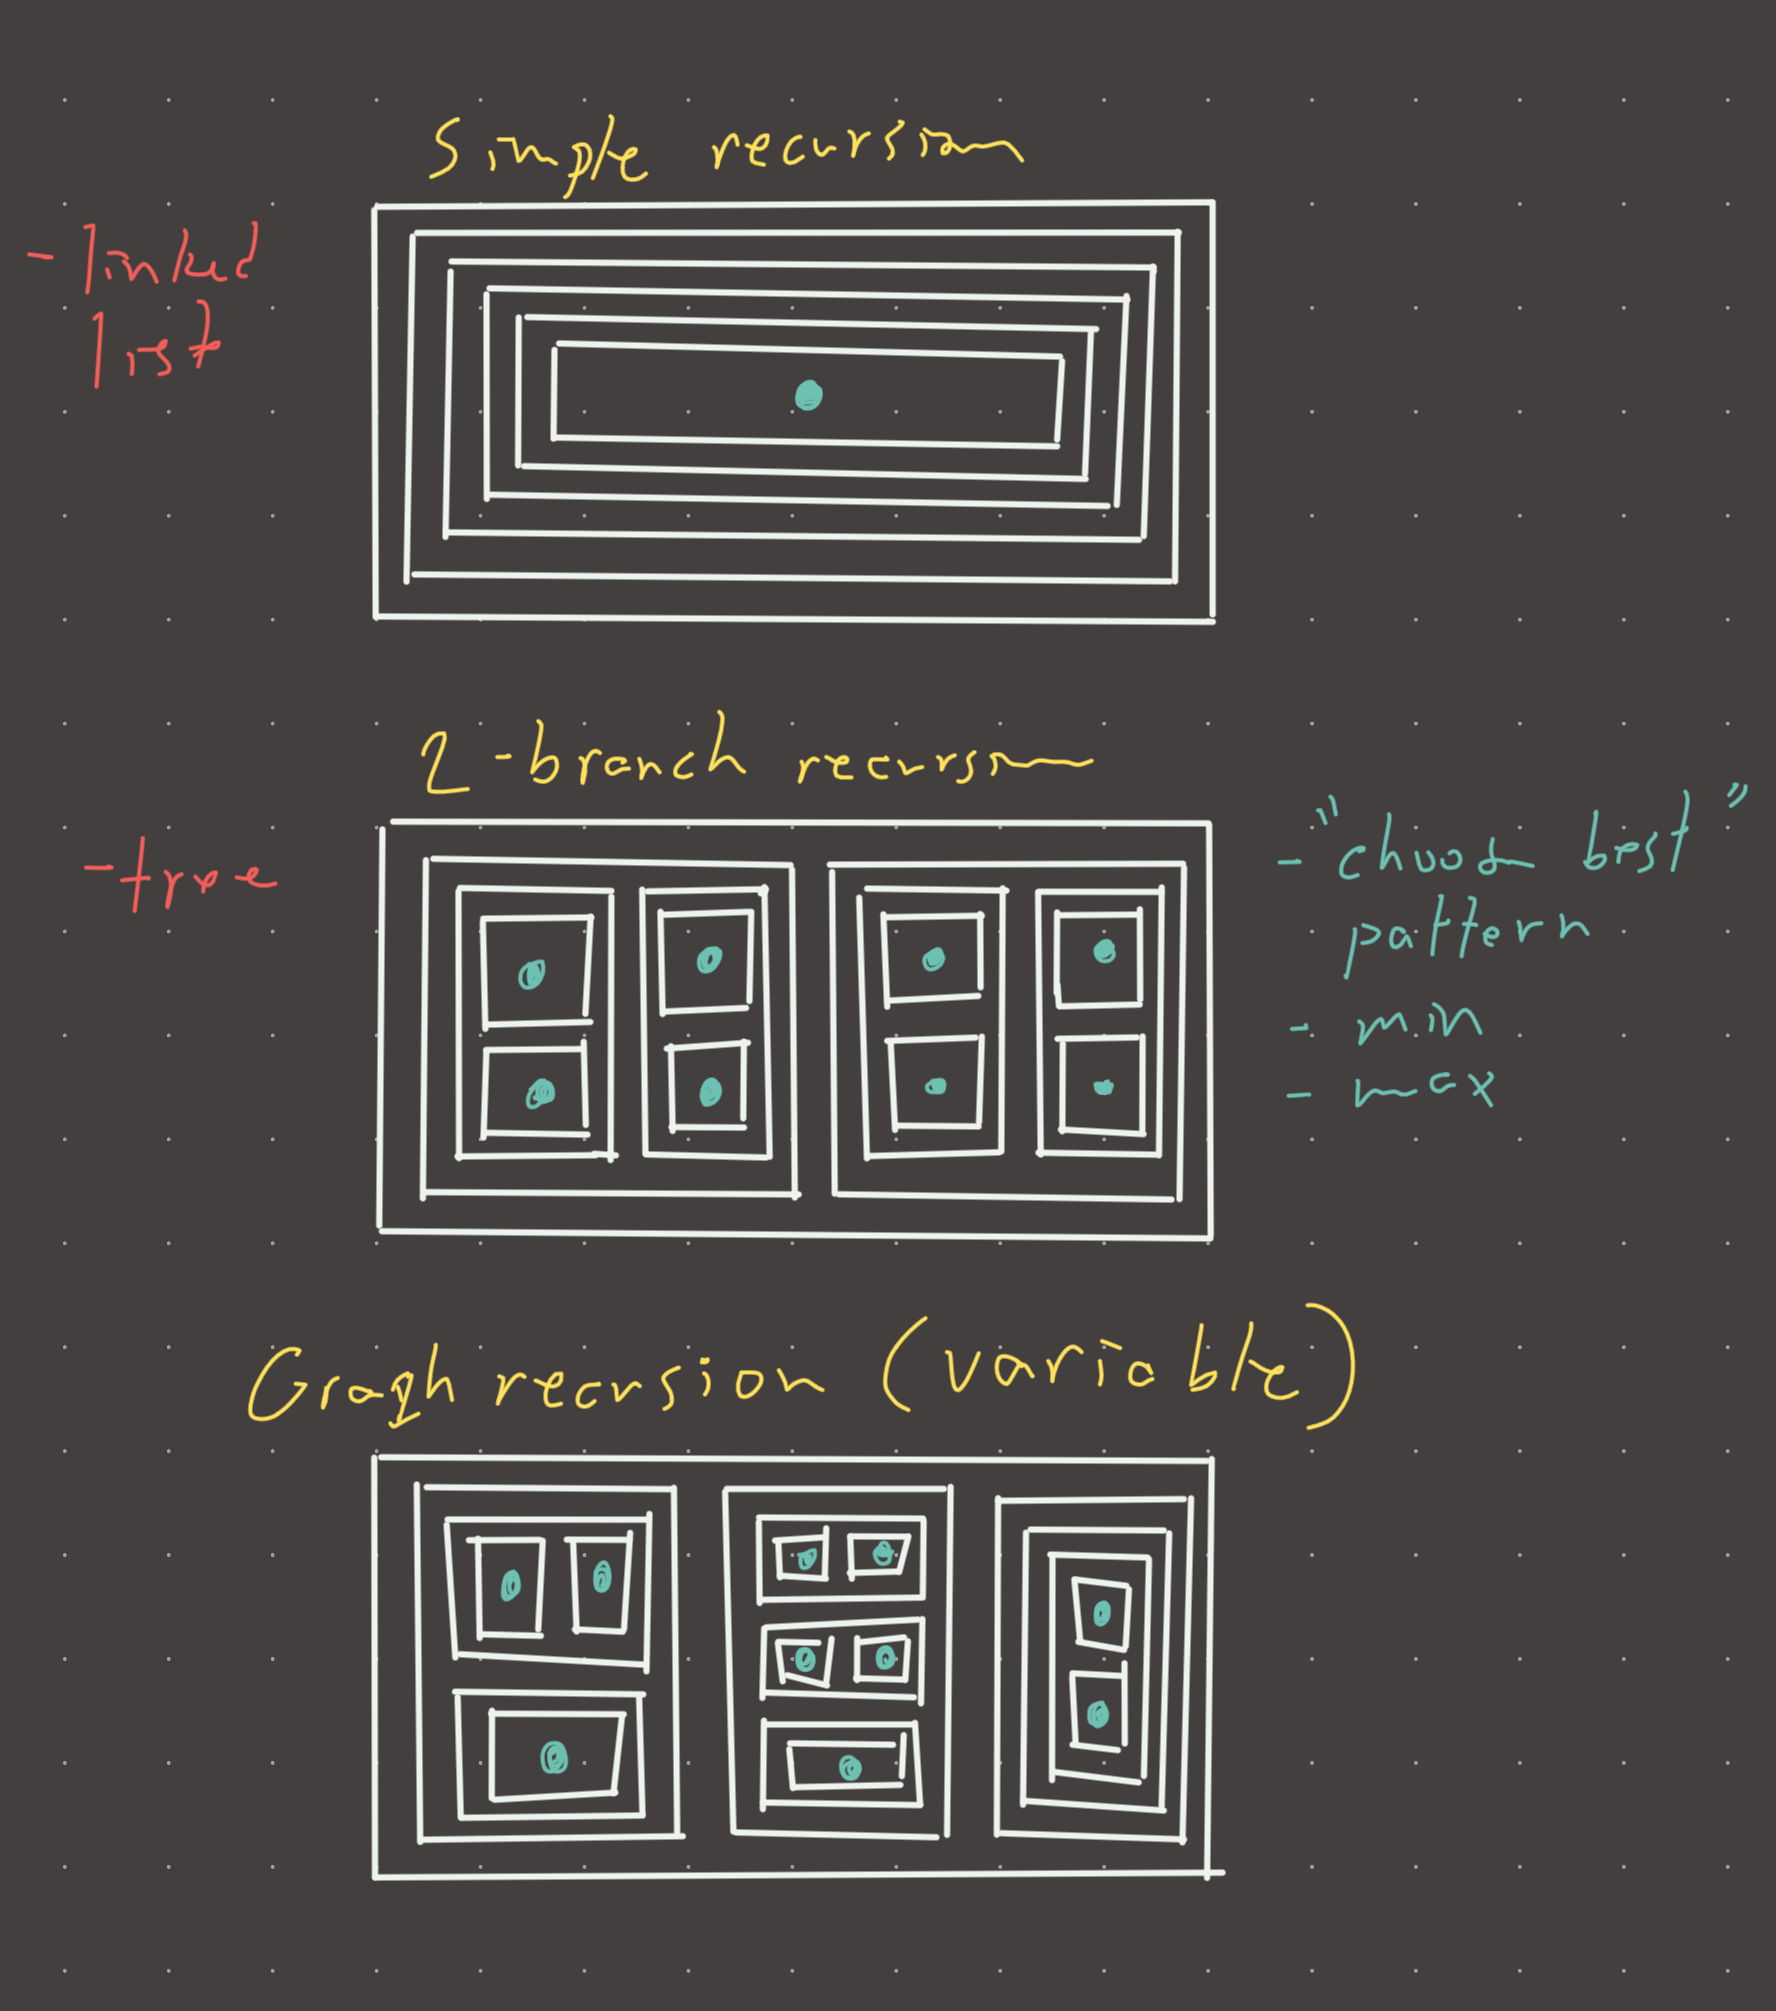 Simple recursion
- linked
list
2-branch recursion
- tree
- "choose best"
pattern
- min
- max
Graph recursion (variable)